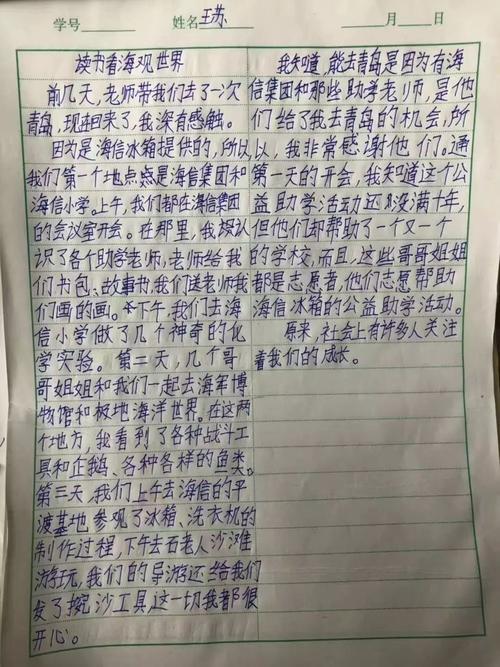 学号 姓名 王苏 月 日
读书看海观世界
前几天，老师带我们去了一次
青岛，现在回来了，我深有感触。
因为是海信冰箱提供的，所以
我们第一个地点是海信集团和
海信小学。上午，我们都在海信集团
的会议室开会。在那里，我认
识了各个助学老师，老师给我
们书包、故事书，我们送老师我
们画的画。下午，我们去海
信小学做了几个神奇的化
学实验。第二天，几个哥
哥姐姐和我们一起去海军博
物馆和极地海洋世界。在这两
个地方，我看到了各种战斗工
具和企鹅、各种各样的鱼类。
第三天，我们上午去海信的平
渡基地参观了冰箱、洗衣机的
制作过程，下午去石老人沙滩
游玩，我们的导游还给我们
发了挖沙工具，这一切我都很
开心。
我知道，能去青岛是因为有海
信集团和那些助学老师，是他
们给了我去青岛的机会，所
以，我非常感谢他们。通
第一天的开会，我知道这个公
益助学活动还没满十年，
但他们却帮助了一个又一个
的学校，而且，这些哥哥姐姐
都是志愿者，他们志愿帮助
海信冰箱的公益助学活动。
原来，社会上有许多人关注
着我们的成长。